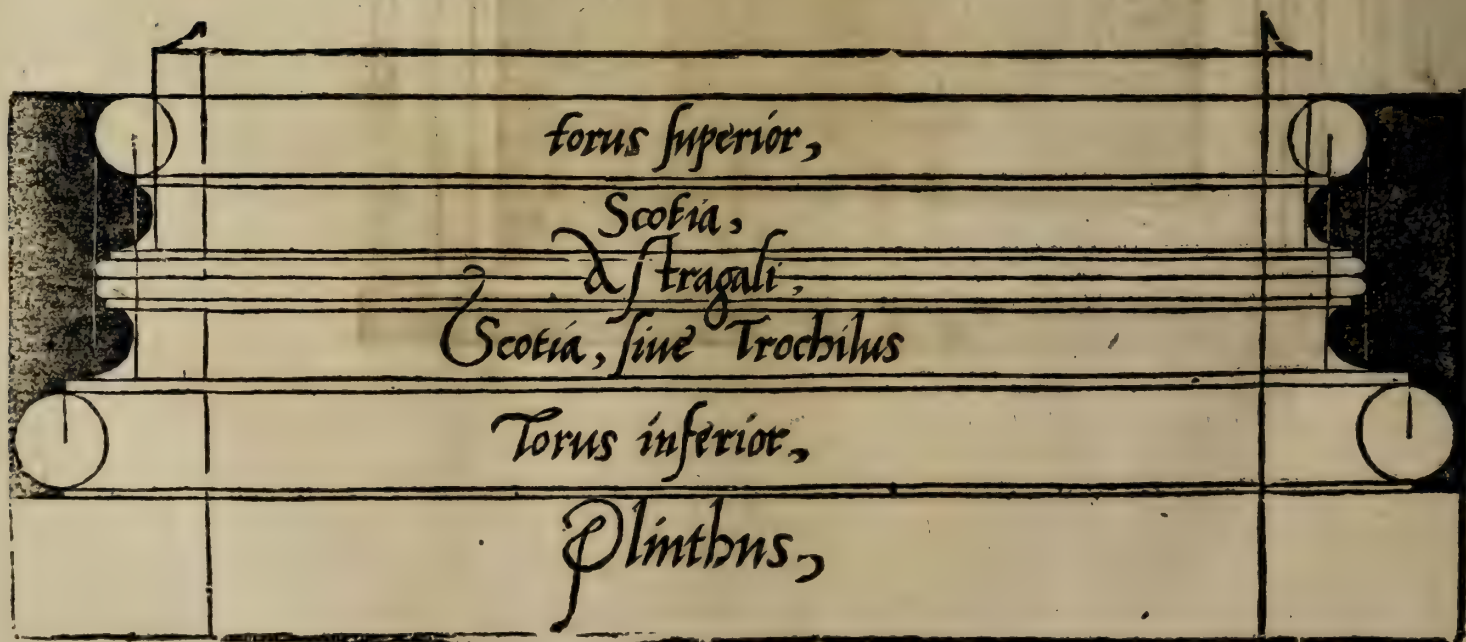 torus ſuperior,
Scotia,
Aſtragali,
Scotia, ſiue Trochilus
Torus inferior,
Plinthus,